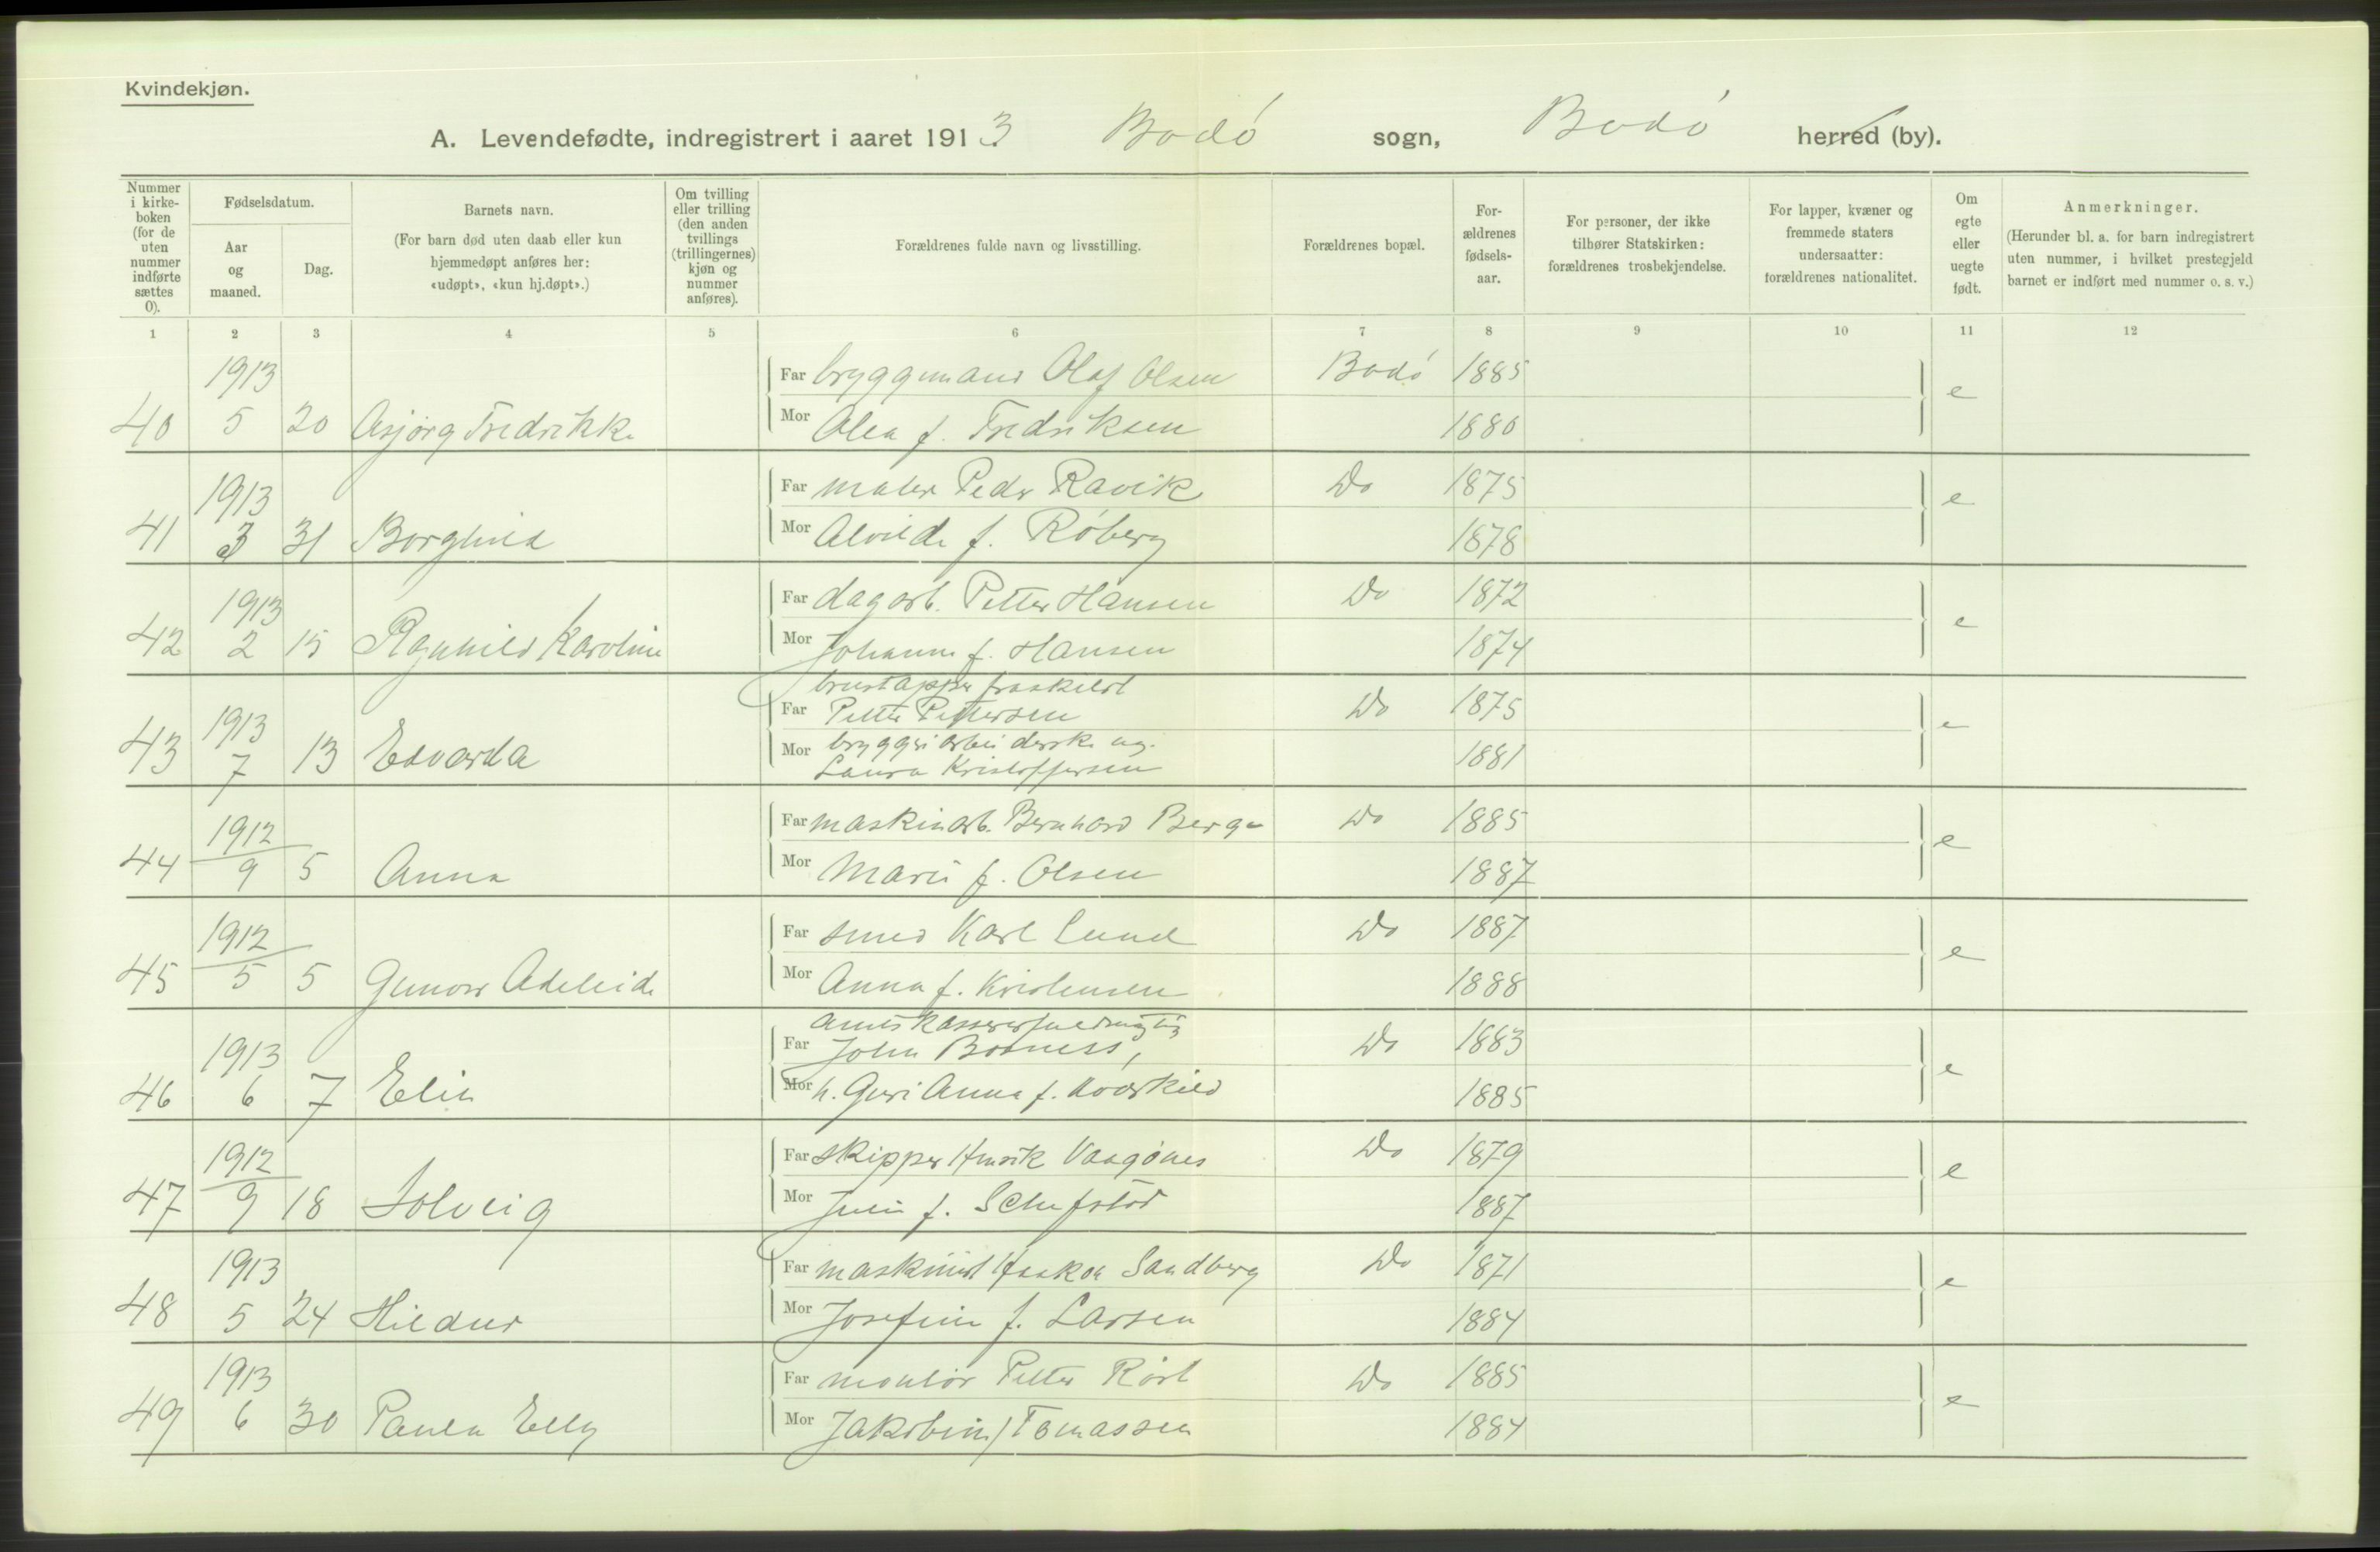 Kvindekjøn.
A. Levendefødte, indregistrert i aaret 1913 Bodó sogn, Bodó herred (by).
Nummer i kirke-boken (for de uten nummer indførte sættes 0).
Fødselsdatum.
Aar og maaned.
Dag.
Barnets navn.
(For barn død uten daab eller kun hjemmedøpt anføres her: «udøpt», «kun hj.døpt».)
Om tvilling eller trilling (den anden tvillings (trillingernes) kjøn og nummer anføres).
Forældrenes fulde navn og livsstilling.
Forældrenes bopæl.
For-ældrenes fødsels-aar.
For personer, der ikke tilhører Statskirken: forældrenes trosbekjendelse.
For lapper, kvæner og fremmede staters undersaatter: forældrenes nationalitet.
Om egte eller uegte født.
Anmerkninger.
(Herunder bl. a. for barn indregistrert uten nummer, i hvilket prestegjeld barnet er indført med nummer o. s. v.)
1 2 3 4 5 6 7 8 9 10 11 12
1913 Far bryggemand Olaf Olsen Bodó 1885 e
40 5 20 Asjørg Fredrikke Mor Olea f. Fredriksen 1880
1913 Far maler Peder Ravik Do 1875 e
41 3 31 Borghild Mor Alvilde f. Róberg 1878
1913 Far dagarb. Petter Hansen Do 1872 e
42 2 15 Ragnhild Karoline Mor Johanne f. Hansen 1874
fraskilt
1913 Far Petter Pettersen Do 1875 e
Mor bryggeriarbeiderske ug.
43 7 13 Edvarda Laura Kristoffersen 1881
1912 Far maskinarb. Bernhard Berge Do 1885 e
44 9 5 Anna Mor Marie f. Olsen 1887
1912 Far smed Karl Lund Do 1887 e
45 5 5 Gunvor Adeleide Mor Anna f. Kristensen 1888
1913 Far John Do 1883 e
46 6 7 Elin Mor h. Guri Anna f. 1885
1912 Far skipper Henrik Vaagønes Do 1879 e
47 9 18 Solveig Mor f. 1887
1913 Far maskinist Haakon Sandberg Do 1871 e
48 5 24 Hildur Mor Josefine f. Larsen 1884
1913 Far montør Petter Røst Do 1885 e
49 6 30 Paula Elly Mor Jakobine f Tomassen 1884